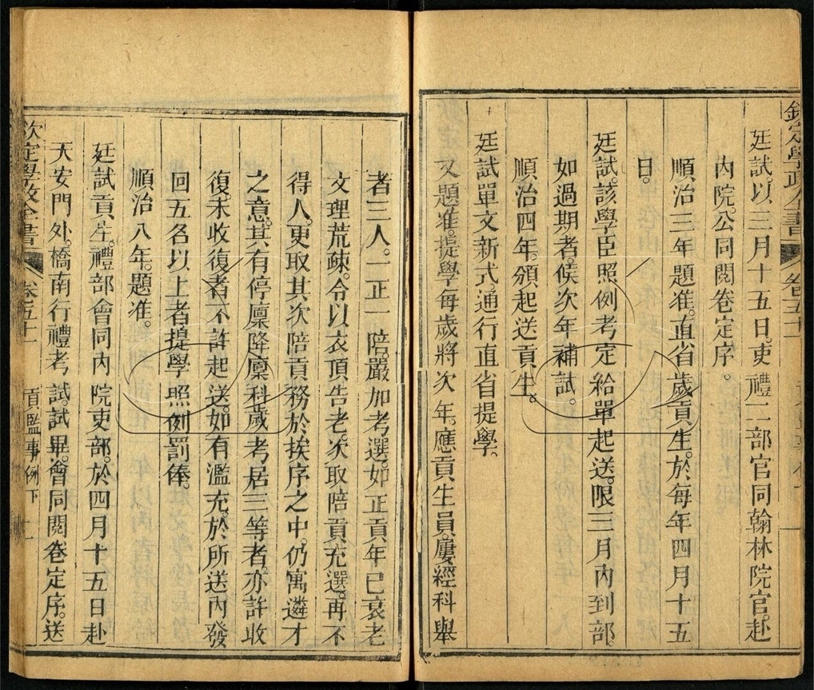 欽定學政全書 卷五十一
廷試以三月十五日。吏禮二部官同翰林院官。赴
內院公同閱卷定序。
順治三年題准。直省歲貢生。於每年四月十五
日。
廷試。該學臣照例考定給單起送。限三月內到部。
如過期者候次年補試。
順治四年。頒起送貢生。
廷試單文新式通行直省提學。
又題准。提學每歲將次年。應貢生員。屢經科舉
者三人。一正一陪。嚴加考選。如正貢年已衰老
文理荒疎。令以衣頂告老。次取陪貢充選。再不
得人。更取其次陪貢。務於挨序之中。仍寓遴才
之意。其有停廩降廩科歲考居三等者。亦許收
復。未收復者不許起送。如有濫充。於所送內發
回五名以上者。提學照例罰俸。
順治八年。題准。
廷試貢生。禮部會同內院吏部。於四月十五日赴
天安門外。橋南行禮考試。試畢。會同閱卷定序。送
欽定學政全書 卷五十一 貢監事例下 一